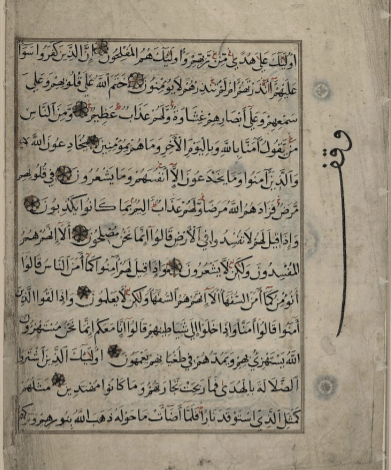 اولئك على هدى من ربهم واولئك هم المفلحون ان الذين كفروا سوا
عليهم ءانذرتهم ام لم تنذرهم لا يؤمنون ختم الله على قلوبهم وعلى
سمعهم وعلى ابصارهم غشاوة ولهم عذاب عظيم ومن الناس
من يقول امنا بالله وباليوم الاخر وما هم بمؤمنين يخادعون الله
والذين امنوا وما يخدعون الا انفسهم وما يشعرون في قلوبهم
مرض فزادهم الله مرضا ولهم عذاب اليم بما كانوا يكذبون
واذا قيل لهم لا تفسدوا في الارض قالوا انما نحن مصلحون الا انهم هم
المفسدون ولكن لا يشعرون واذا قيل لهم امنوا كما امن الناس قالوا
انؤمن كما امن السفها الا انهم هم السفها ولكن لا يعلمون واذا لقوا الذين
امنوا قالوا امنا واذا خلوا الى شياطينهم قالوا انا معكم انما نحن مستهزون
الله يستهزئ بهم ويمدهم في طغيانهم يعمهون اولئك الذين اشتروا
الضلالة بالهدى فما ربحت تجارتهم وما كانوا مهتدين مثلهم
كمثل الذي استوقد نارا فلما اضات ما حوله ذهب الله بنورهم وتركهم
وقف